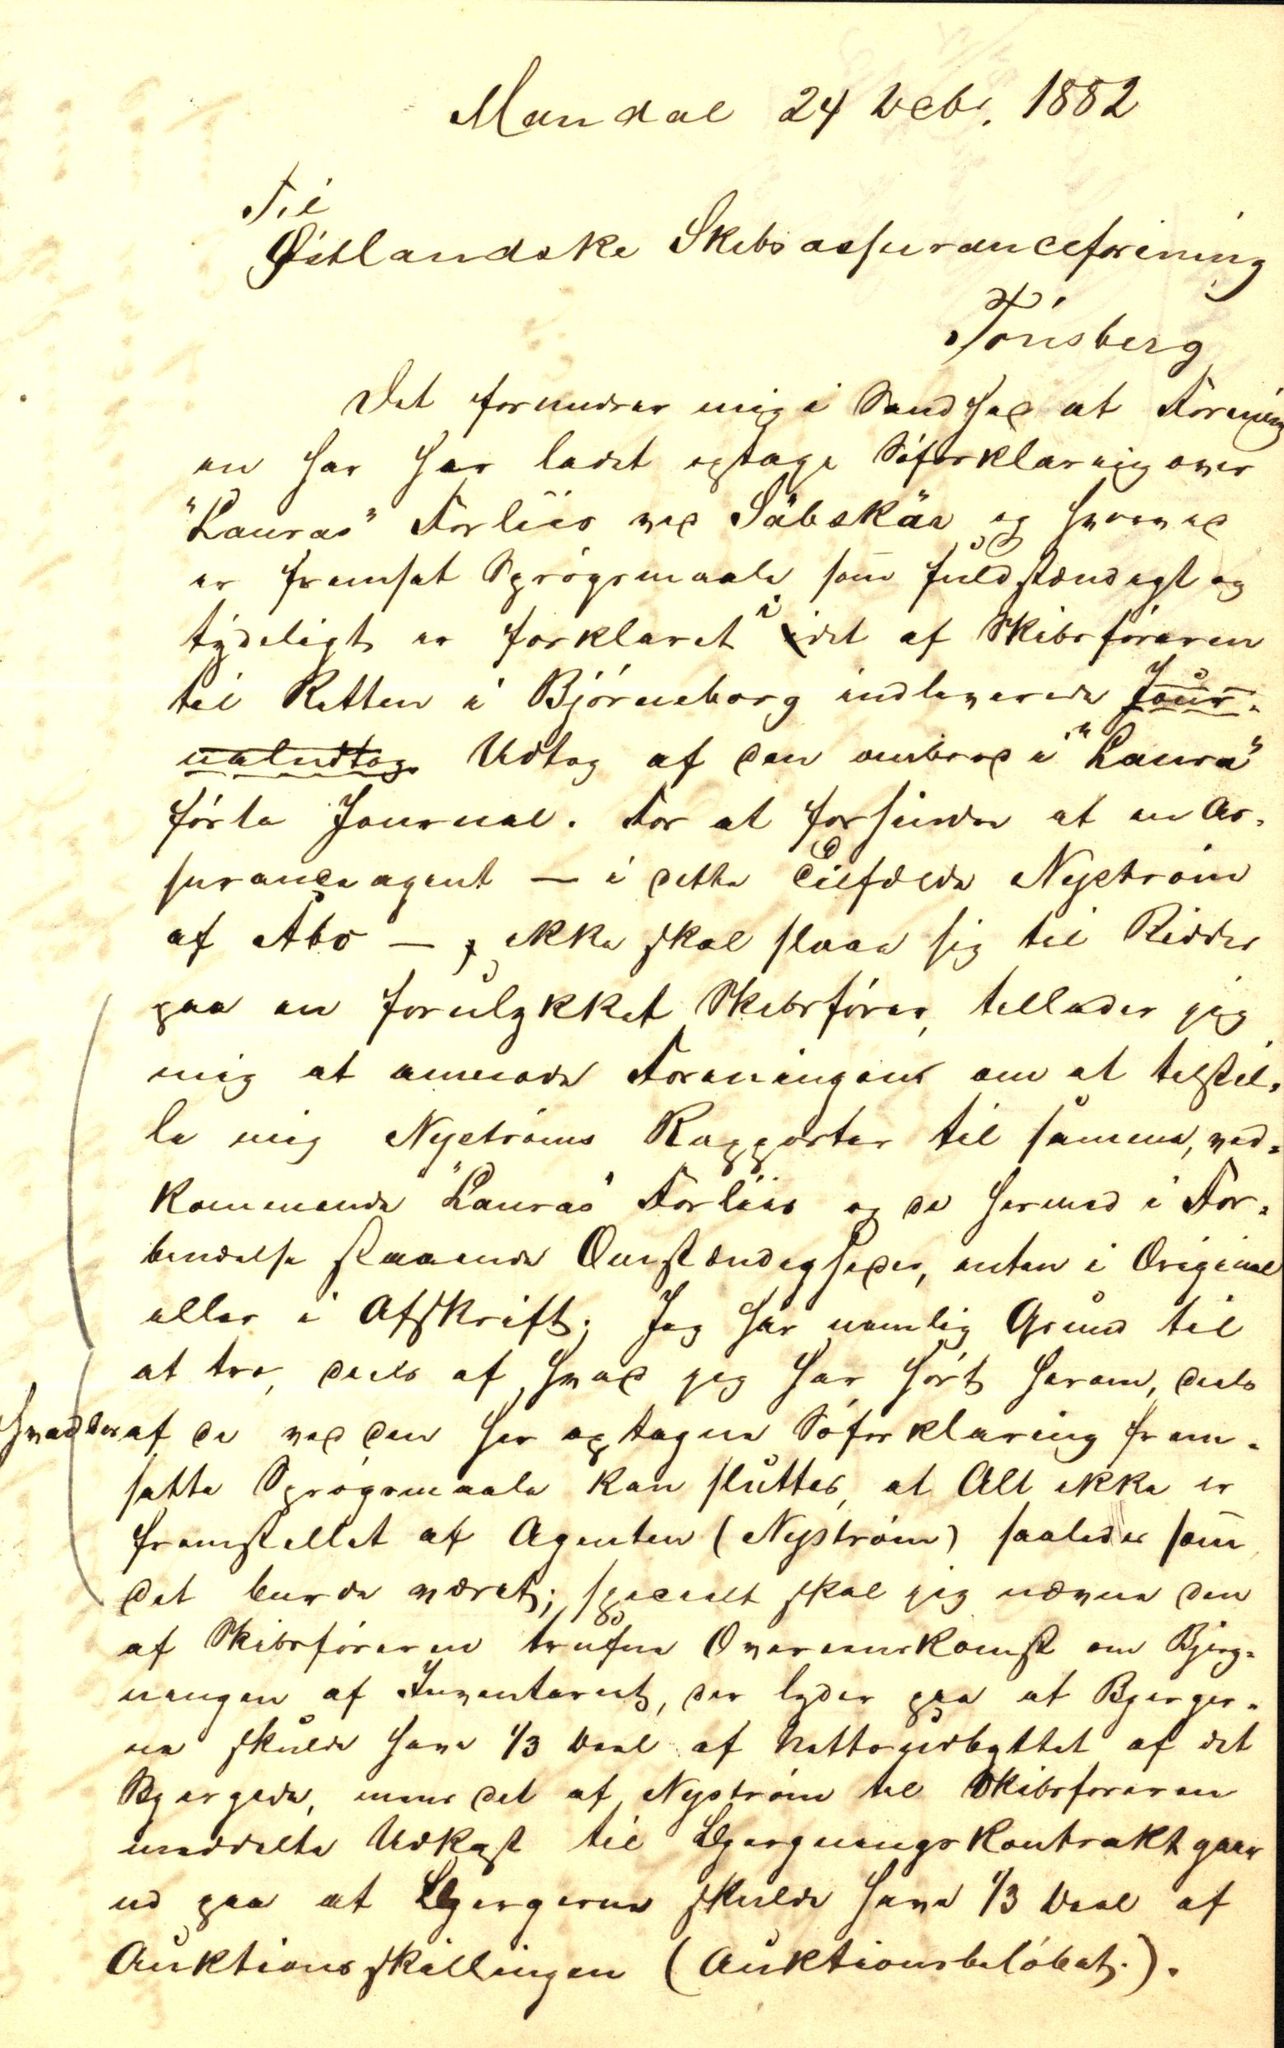 Mandal 24 Decbr. 1882
Til
Østlandske Skibsassuranceforening
Tönsberg
Det forundrer mig i Sandhed at Forening
en har her ladet optage Söforklaring over
"Lauras" Forliis ved Säbskär og hvorved
er fremsat Spörgsmaale som fuldstændigt og
tydeligt er forklaret i det af Skibsföreren
til Retten i Björneborg indleverede Jour-
naludtog Udtog af den ombord i "Laura"
förte Journal. For at forhindre at en As-
suranceagent — i dette Tilfælde Nyström
af Åbo — ikke skal slaae sig til Ridder
paa en forulykket Skibsförer, tillader jeg
mig at anmode Foreningen om at tilstil-
le mig Nyströms Rapporter til samme, ved-
kommende "Lauras" Forliis og de hermed i For-
bindelse staaende Omstændigheder, enten i Original
eller i Afskrift. Jeg har nemlig Grund til
at tro, deels af hvad jeg har hört herom, deels
hvad der af de ved den her optagne Söforklaring frem-
satte Spörgsmaale kan sluttes, at Alt ikke er
fremstillet af Agenten (Nyström) saaledes som
det burde været; specielt skal jeg nævne den
af Skibsföreren trufne Overenskomst om Bjerg-
ningen af Inventariet, der lyder paa at Bjerger-
ne skulde have 1/3 Deel af Nettoudbyttet af det
Bjergede, mens det af Nyström til Skibsföreren
meddelte Udkast til Bjergningskontrakt gaar
ud paa at Bjergerne skulde have 1/3 Deel af
Auktionsskillingen (Auktionsbelöbet.).